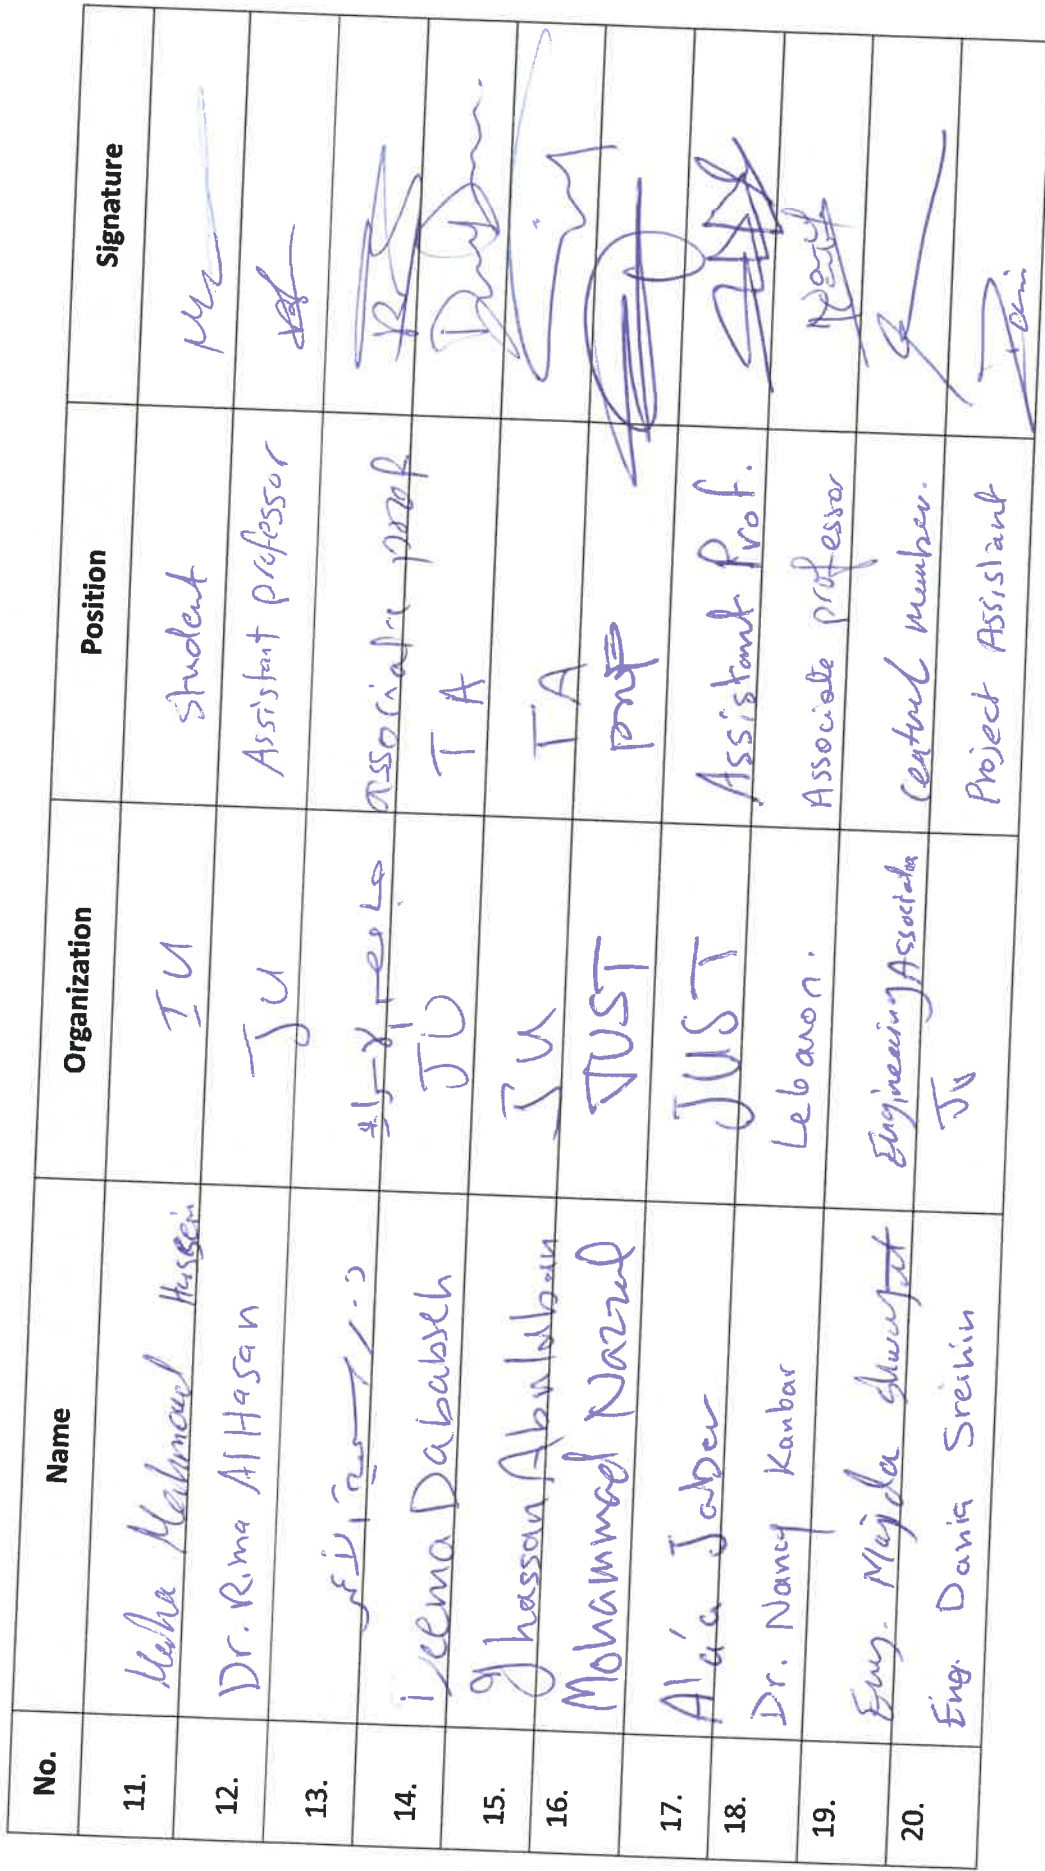 No. Name Organization Position Signature
11. Maha Mahmoud Hussein IU student
12. Dr. Rima AlHasan JU Assistant professor
13. associate prof
14. Deema Dababseh JU TA
15. Ghassan Abulaban JU TA
16. Mohammad Nazzal JUST prof
17. Ala'a Jaber JUST Assistant Prof.
18. Dr. Nancy Kanbar Lebanon. Associate professor
19. Eng. Majda Engineering Association Central member.
20. Eng. Dania Sreihin JU Project Assistant